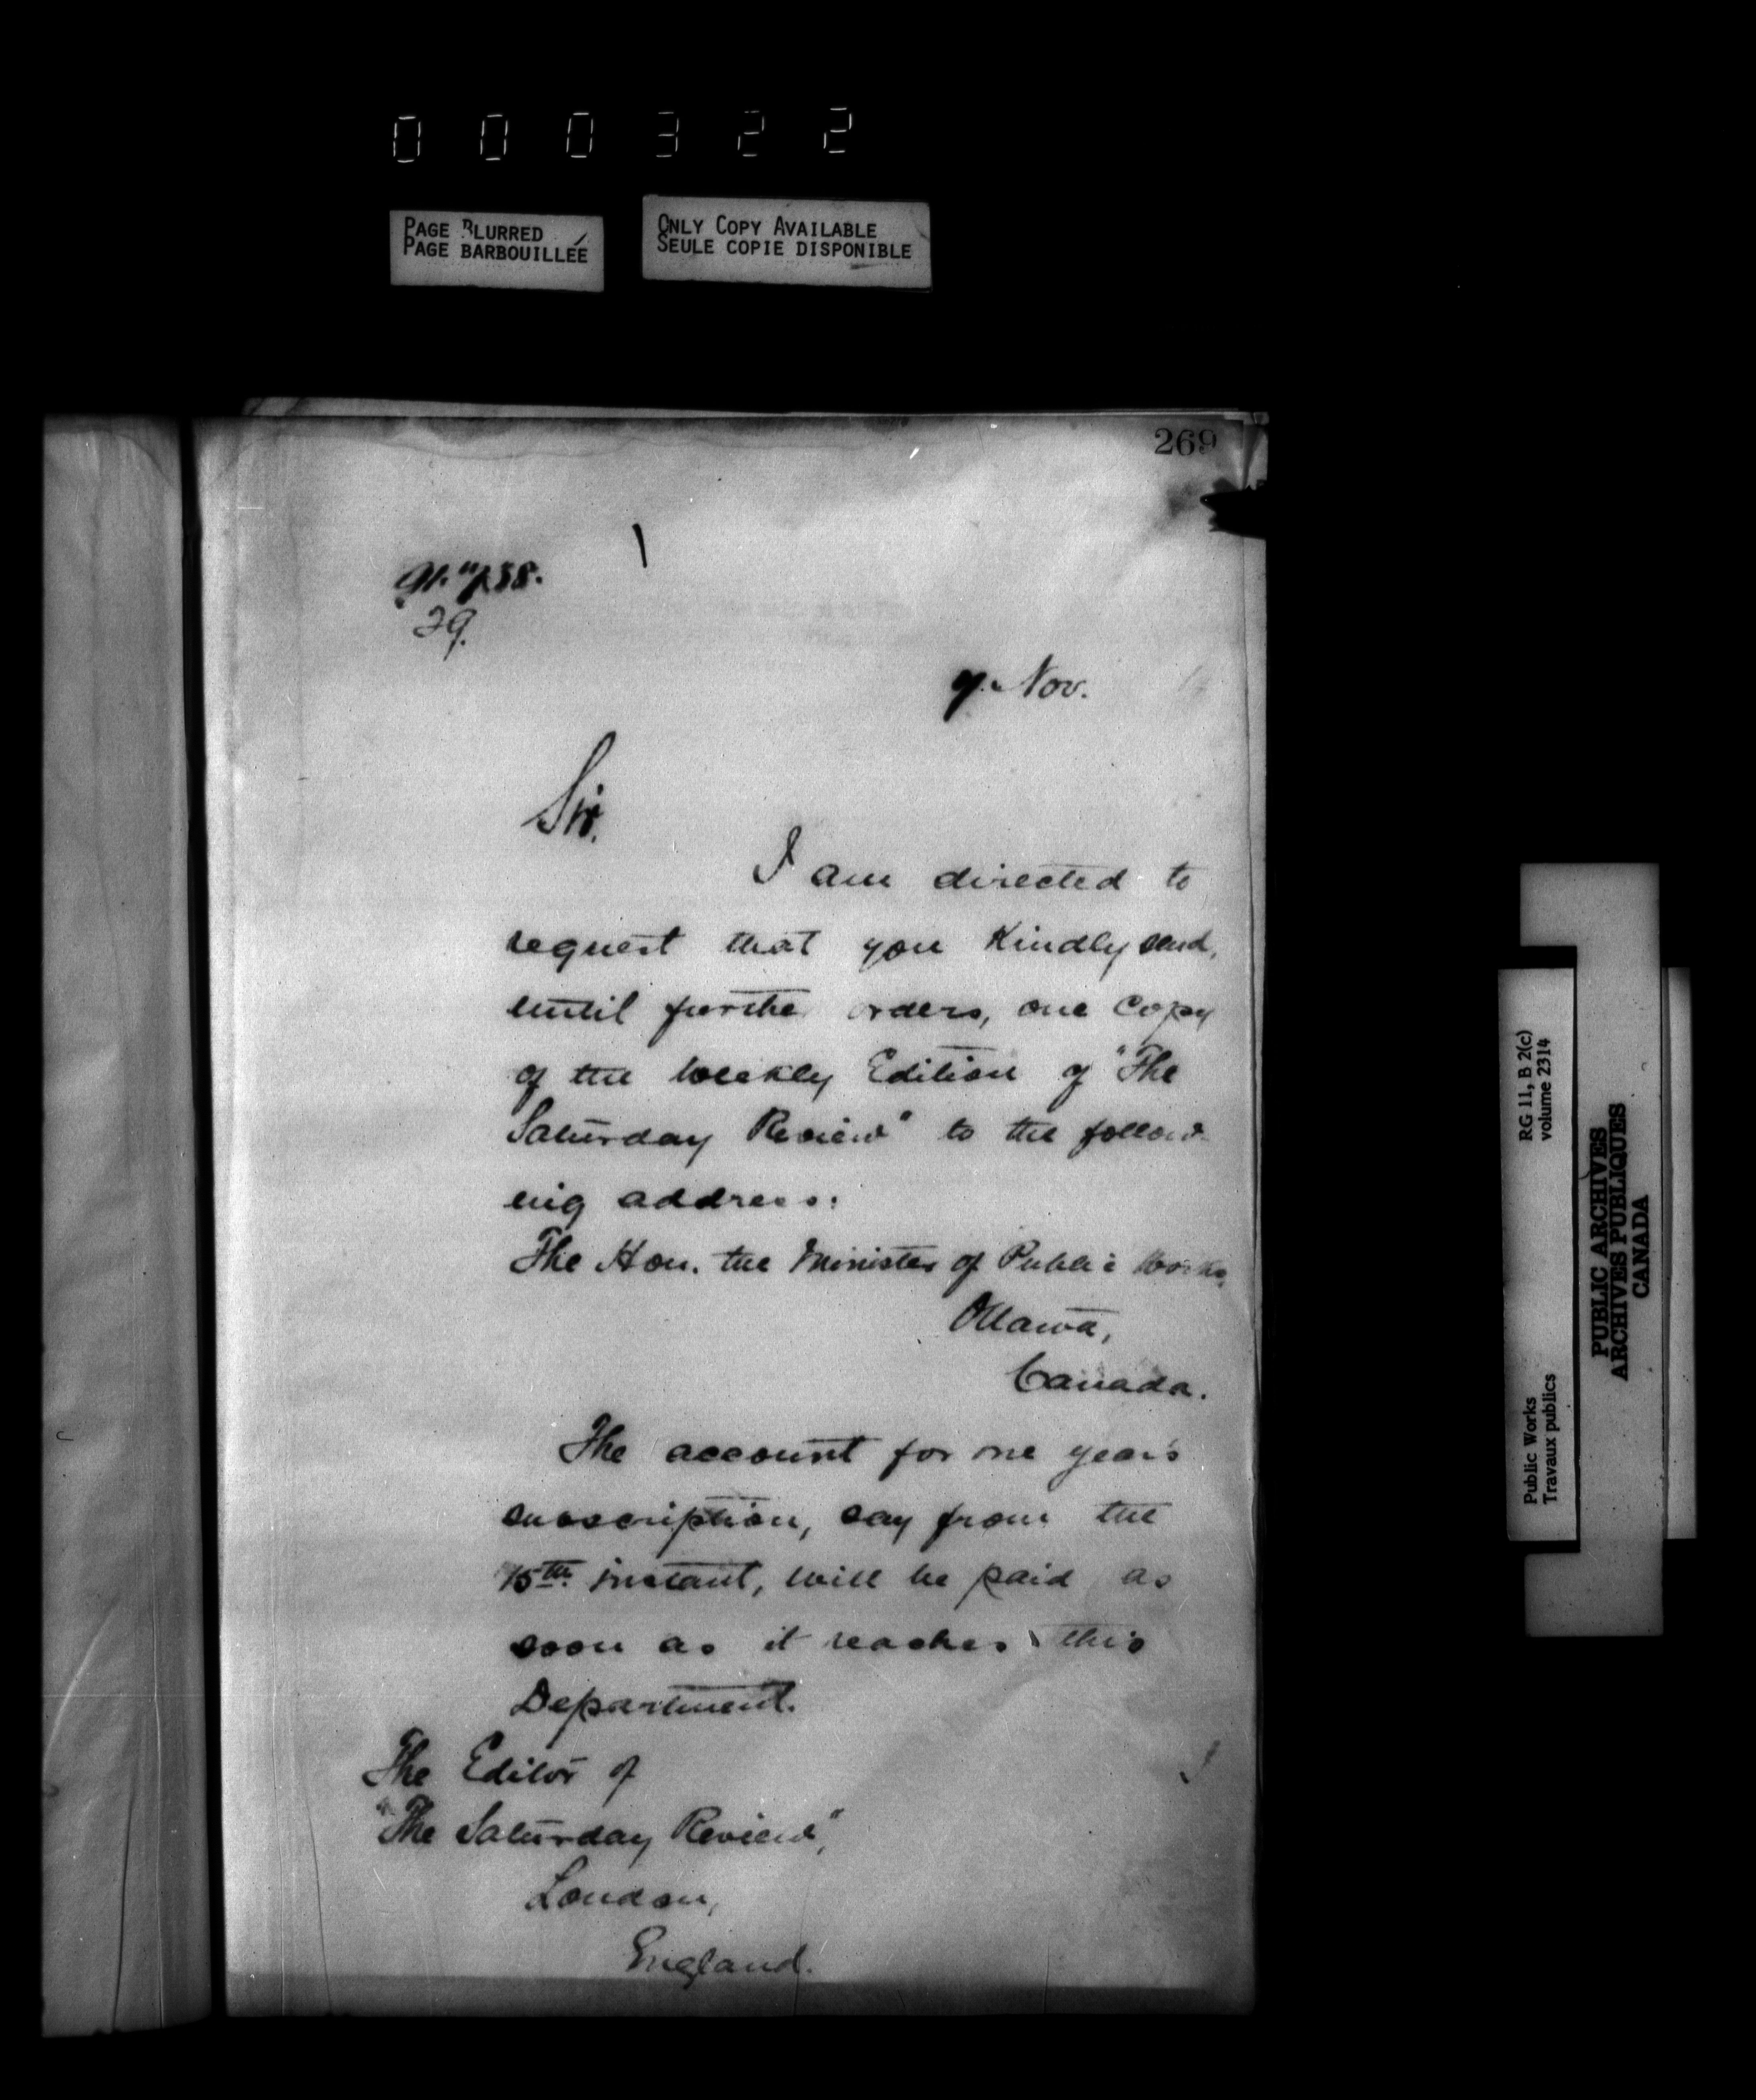 000322
PAGE BLURRED
PAGE BARBOUILLÉE
ONLY COPY AVAILABLE
SEULE COPIE DISPONIBLE
269
29.
7. Nov.
Sir,
I am directed to
request that you Kindly send,
until further orders, one Copy
of the Weekly Edition of "The
Saturday Review" to the follow
ing address:
The Hon. the Minister of Public Works,
Ottawa,
Canada.
The account for one year's
subscription, say from the
15th. instant, will be paid as
soon as it reaches this
Department.
The Editor of
"The Saturday Review",
London,
England.
RG 11, B 2(c)
volume 2314
Public Works
Travaux publics
PUBLIC ARCHIVES
ARCHIVES PUBLIQUES
CANADA